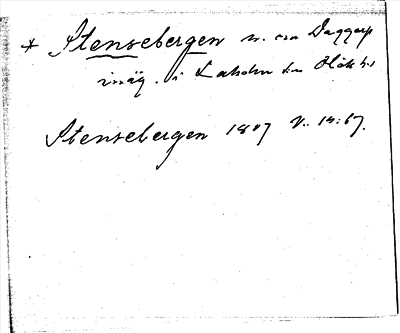 * Stensebergen n. om Daggarp
inäg. i Laholm
Stensebergen 1807 V: 14:67.